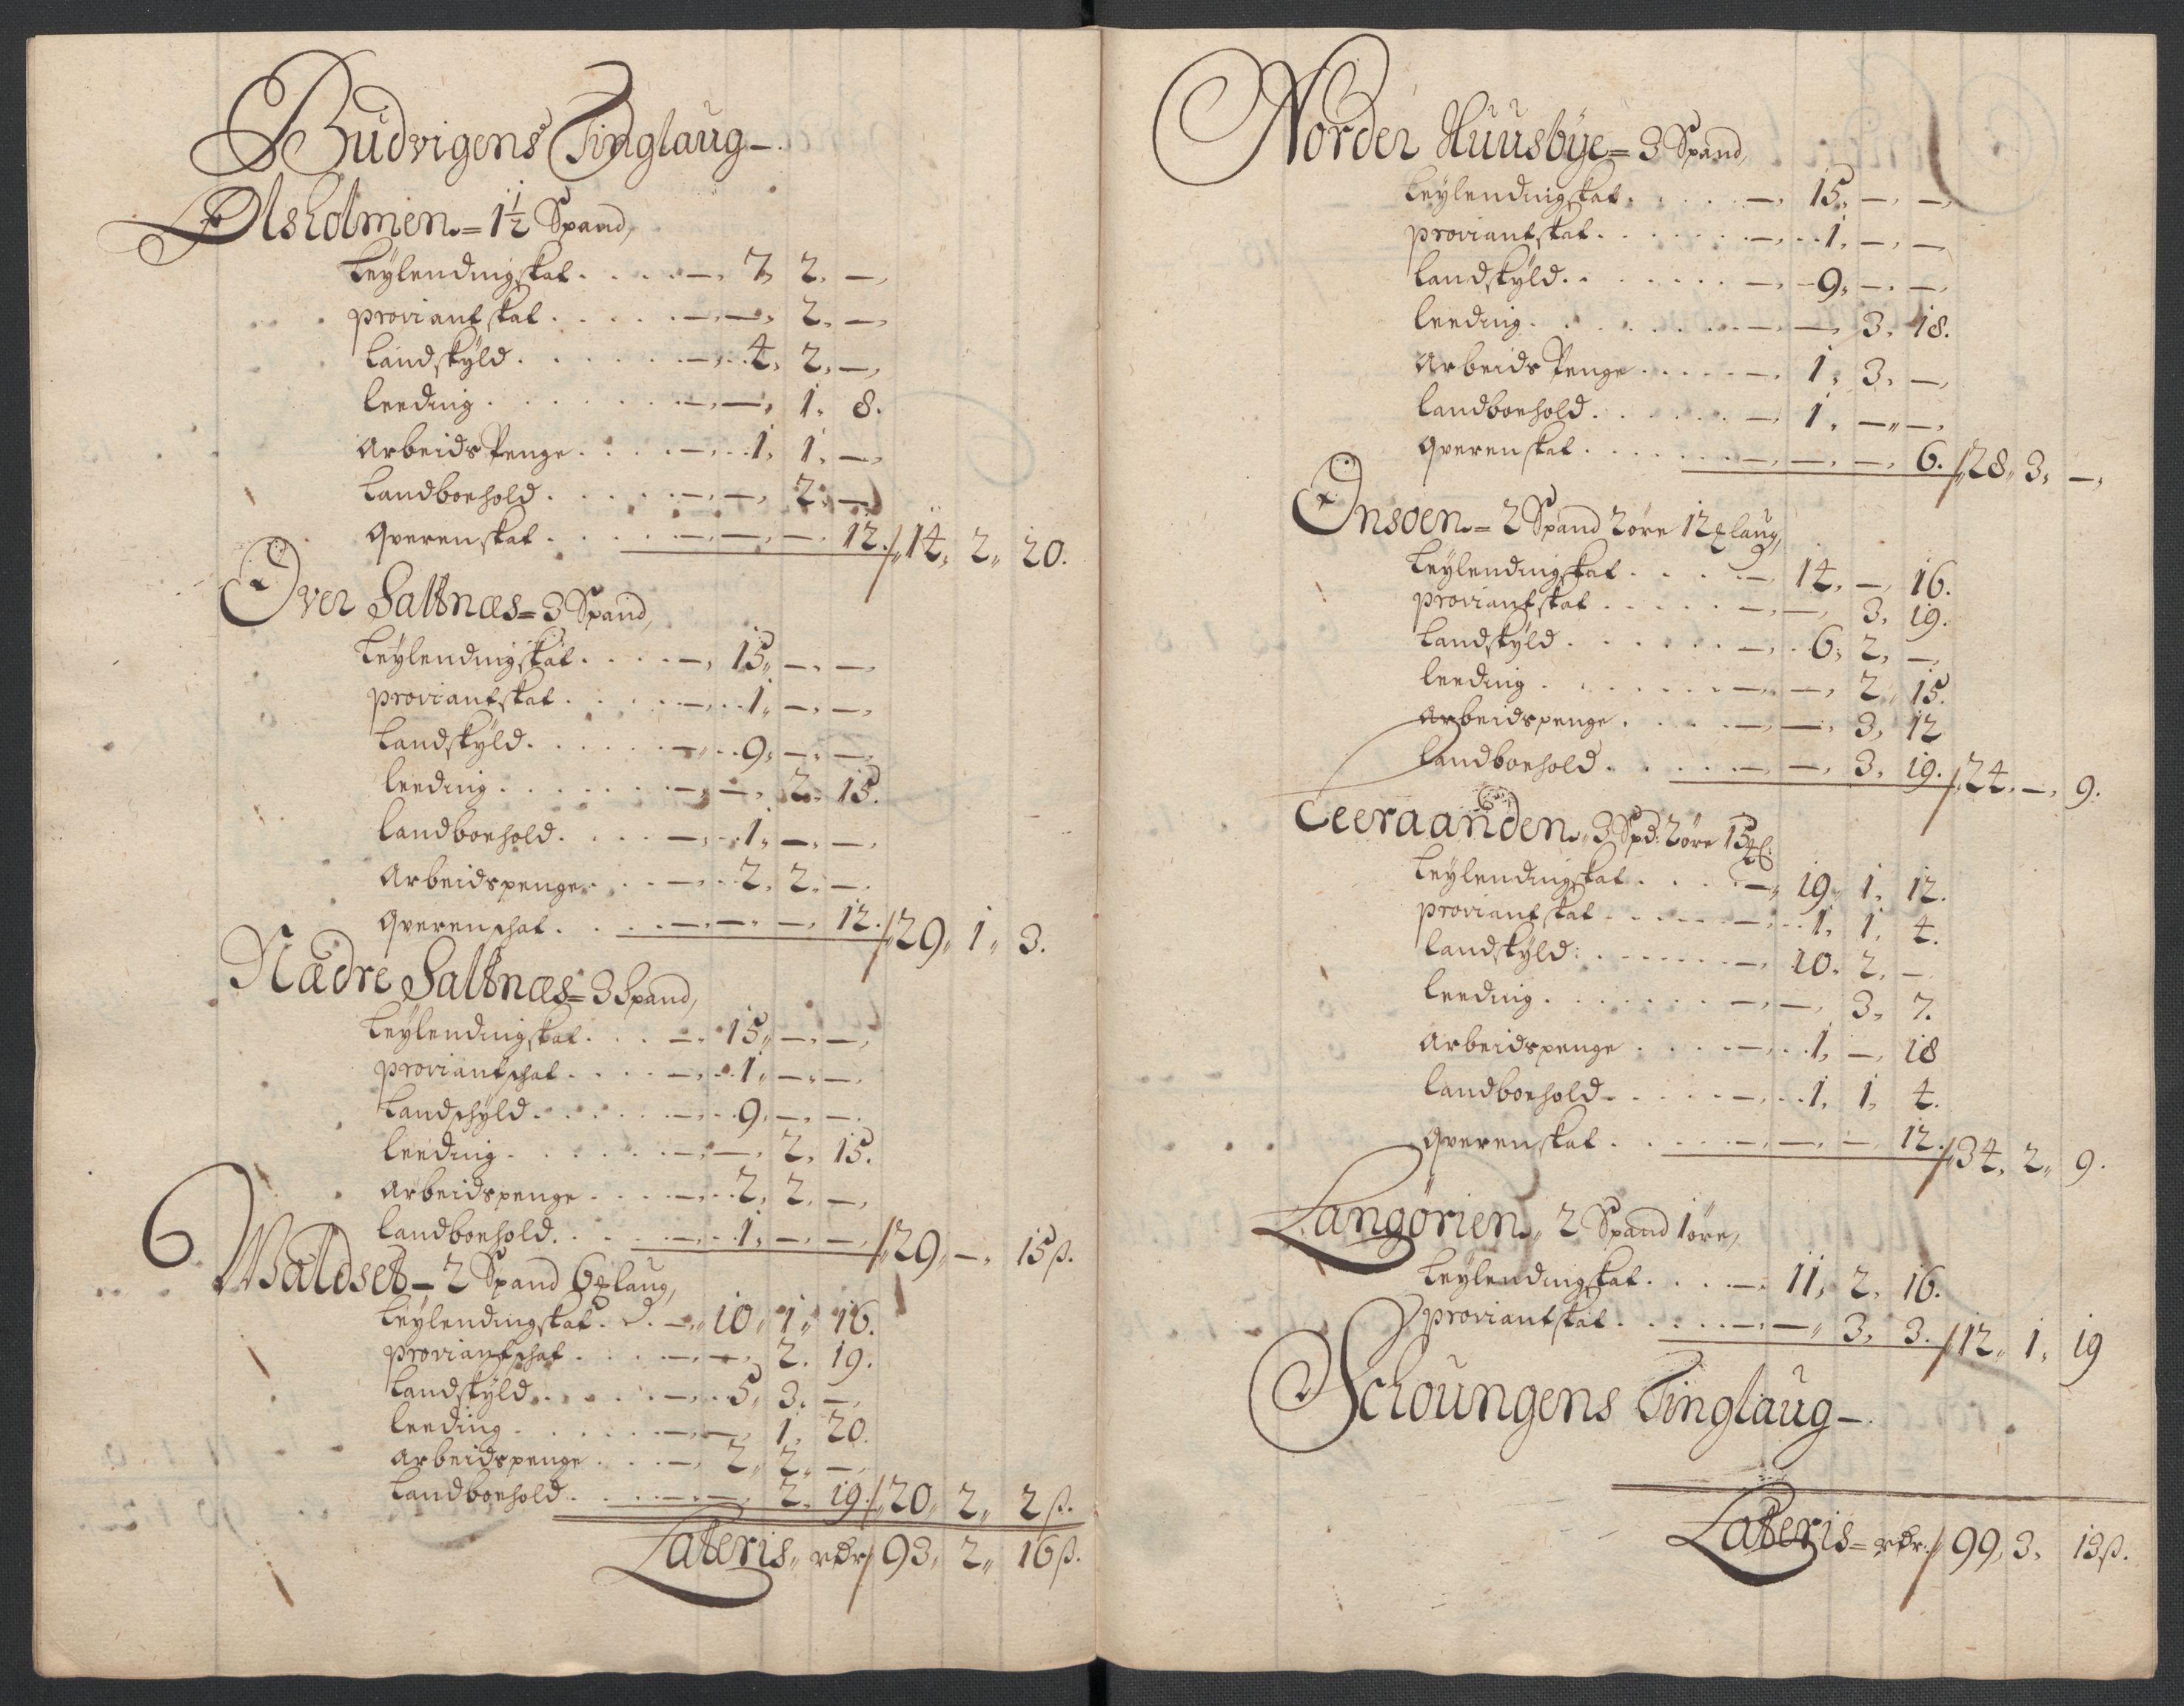 Budvigens Tinglaug -
Olsholmen = 1½ Spand,
Leylendingskat . . . . — 7, 2. —
proviantskat . . . . . — — 2. —
Landskyld . . . . . — 4, 2. —
leeding . . . . . — — 1. 8.
Arbeids Penge . . . . — 1. 1. —
Landboehold . . . . — — 2. —
qverenskat . . . . — — — 12. / 14, 2, 20.
Over Saltnæs = 3 Spand,
Leylendingskat . . . . — 15, — —
proviantskat . . . . . — 1, — —
Landskyld . . . . . — 9, — —
leeding . . . . . — — 2. 15.
Landboehold . . . . — 1, — —
Arbeidspenge . . . — 2, 2. —
qverenschat . . . — — — 12. / 29, 1, 3.
Nædre Saltnæs = 3 Spand,
Leylendingskat . . . — 15, — —
proviantschat . . . . — 1, — —
Landschyld . . . . — 9, — —
leeding . . . . . — — 2, 15.
Arbeidspenge . . . . — 2, 2. —
Landboehold . . . — 1, — — / 29, — 15ß.
6 Waldset - 2 Spand 6 laug,
Leylendingskat . . — 10, 1, 16.
proviantschat . . . . — — 2. 19.
Landskyld . . . . — 5, 3. —
leeding . . . . . — — 1, 20.
Arbeidspenge . . . — 2, 2. —
Landboehold . . . . — — 2. 19. / 20, 2, 2ß.
Lateris, rdr / 93, 2, 16ß.
Norder Huusbye = 3 Spand,
Leylendingskat . . . . — 15, — —
proviantskat . . . . . — 1, — —
Landskyld . . . . . — 9, — —
leeding . . . . . — — 3. 18.
Arbeids Penge . . . . — 1, 3. —
Landboehold . . . . — 1, — —
qverenskat . . . . . — — — 6. / 28, 3, —
Onsøen = 2 Spand 2 øre 12 laug,
Leylendingskat . . . . — 14, — 16.
proviantskat . . . . — — 3. 19.
Landskyld . . . . . — 6, 2, —
leeding . . . . . — — 2, 15.
Arbeidspenge . . . . — — 3, 12
Landboehold . . . . — — 3. 19. / 24, — 9.
Leeraanden, 3 Spd: 2 øre 15
Leylendingskat . . . — 19, 1, 12.
proviantskat . . . . — 1, 1, 4.
Landskyld: . . . . . — 10. 2, —
leeding . . . . . — — 3, 7.
Arbeidspenge . . . . — 1, — 18
Landboehold . . . . — 1, 1, 4.
qverenskat . . . . — — — 12. / 34, 2, 9.
Langørien, 2 Spand 1 øre,
Leylendingskat . . . . — 11, 2, 16.
proviantskat . . . . . — — 3, 3. / 12, 1, 19
Schoungens Tinglaug -
Lateris = rdr. / 99, 3, 13ß.